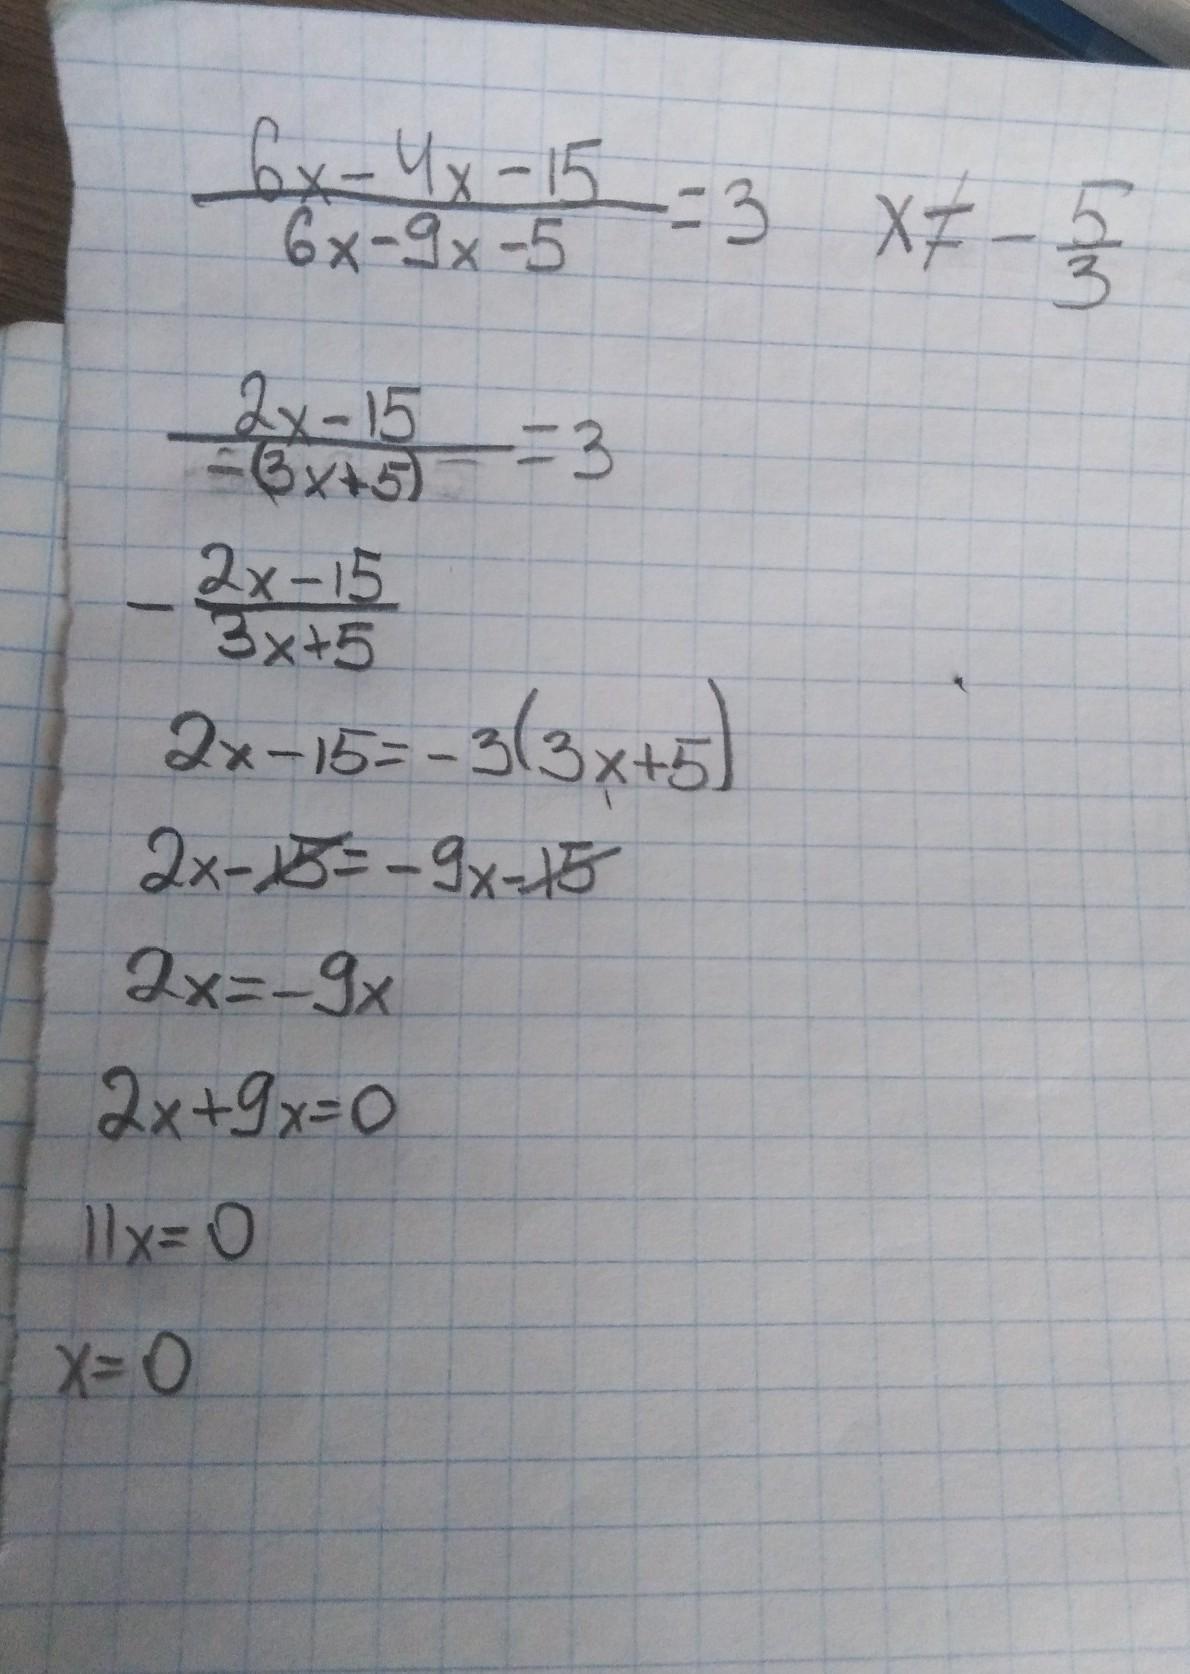 6x-4x-15/6x-9x-5=3 x≠-5/3
2x-15/-(3x+5)=3
-2x-15/3x+5
2x-15=-3(3x+5)
2x-15=-9x-15
2x=-9x
2x+9x=0
11x=0
x=0